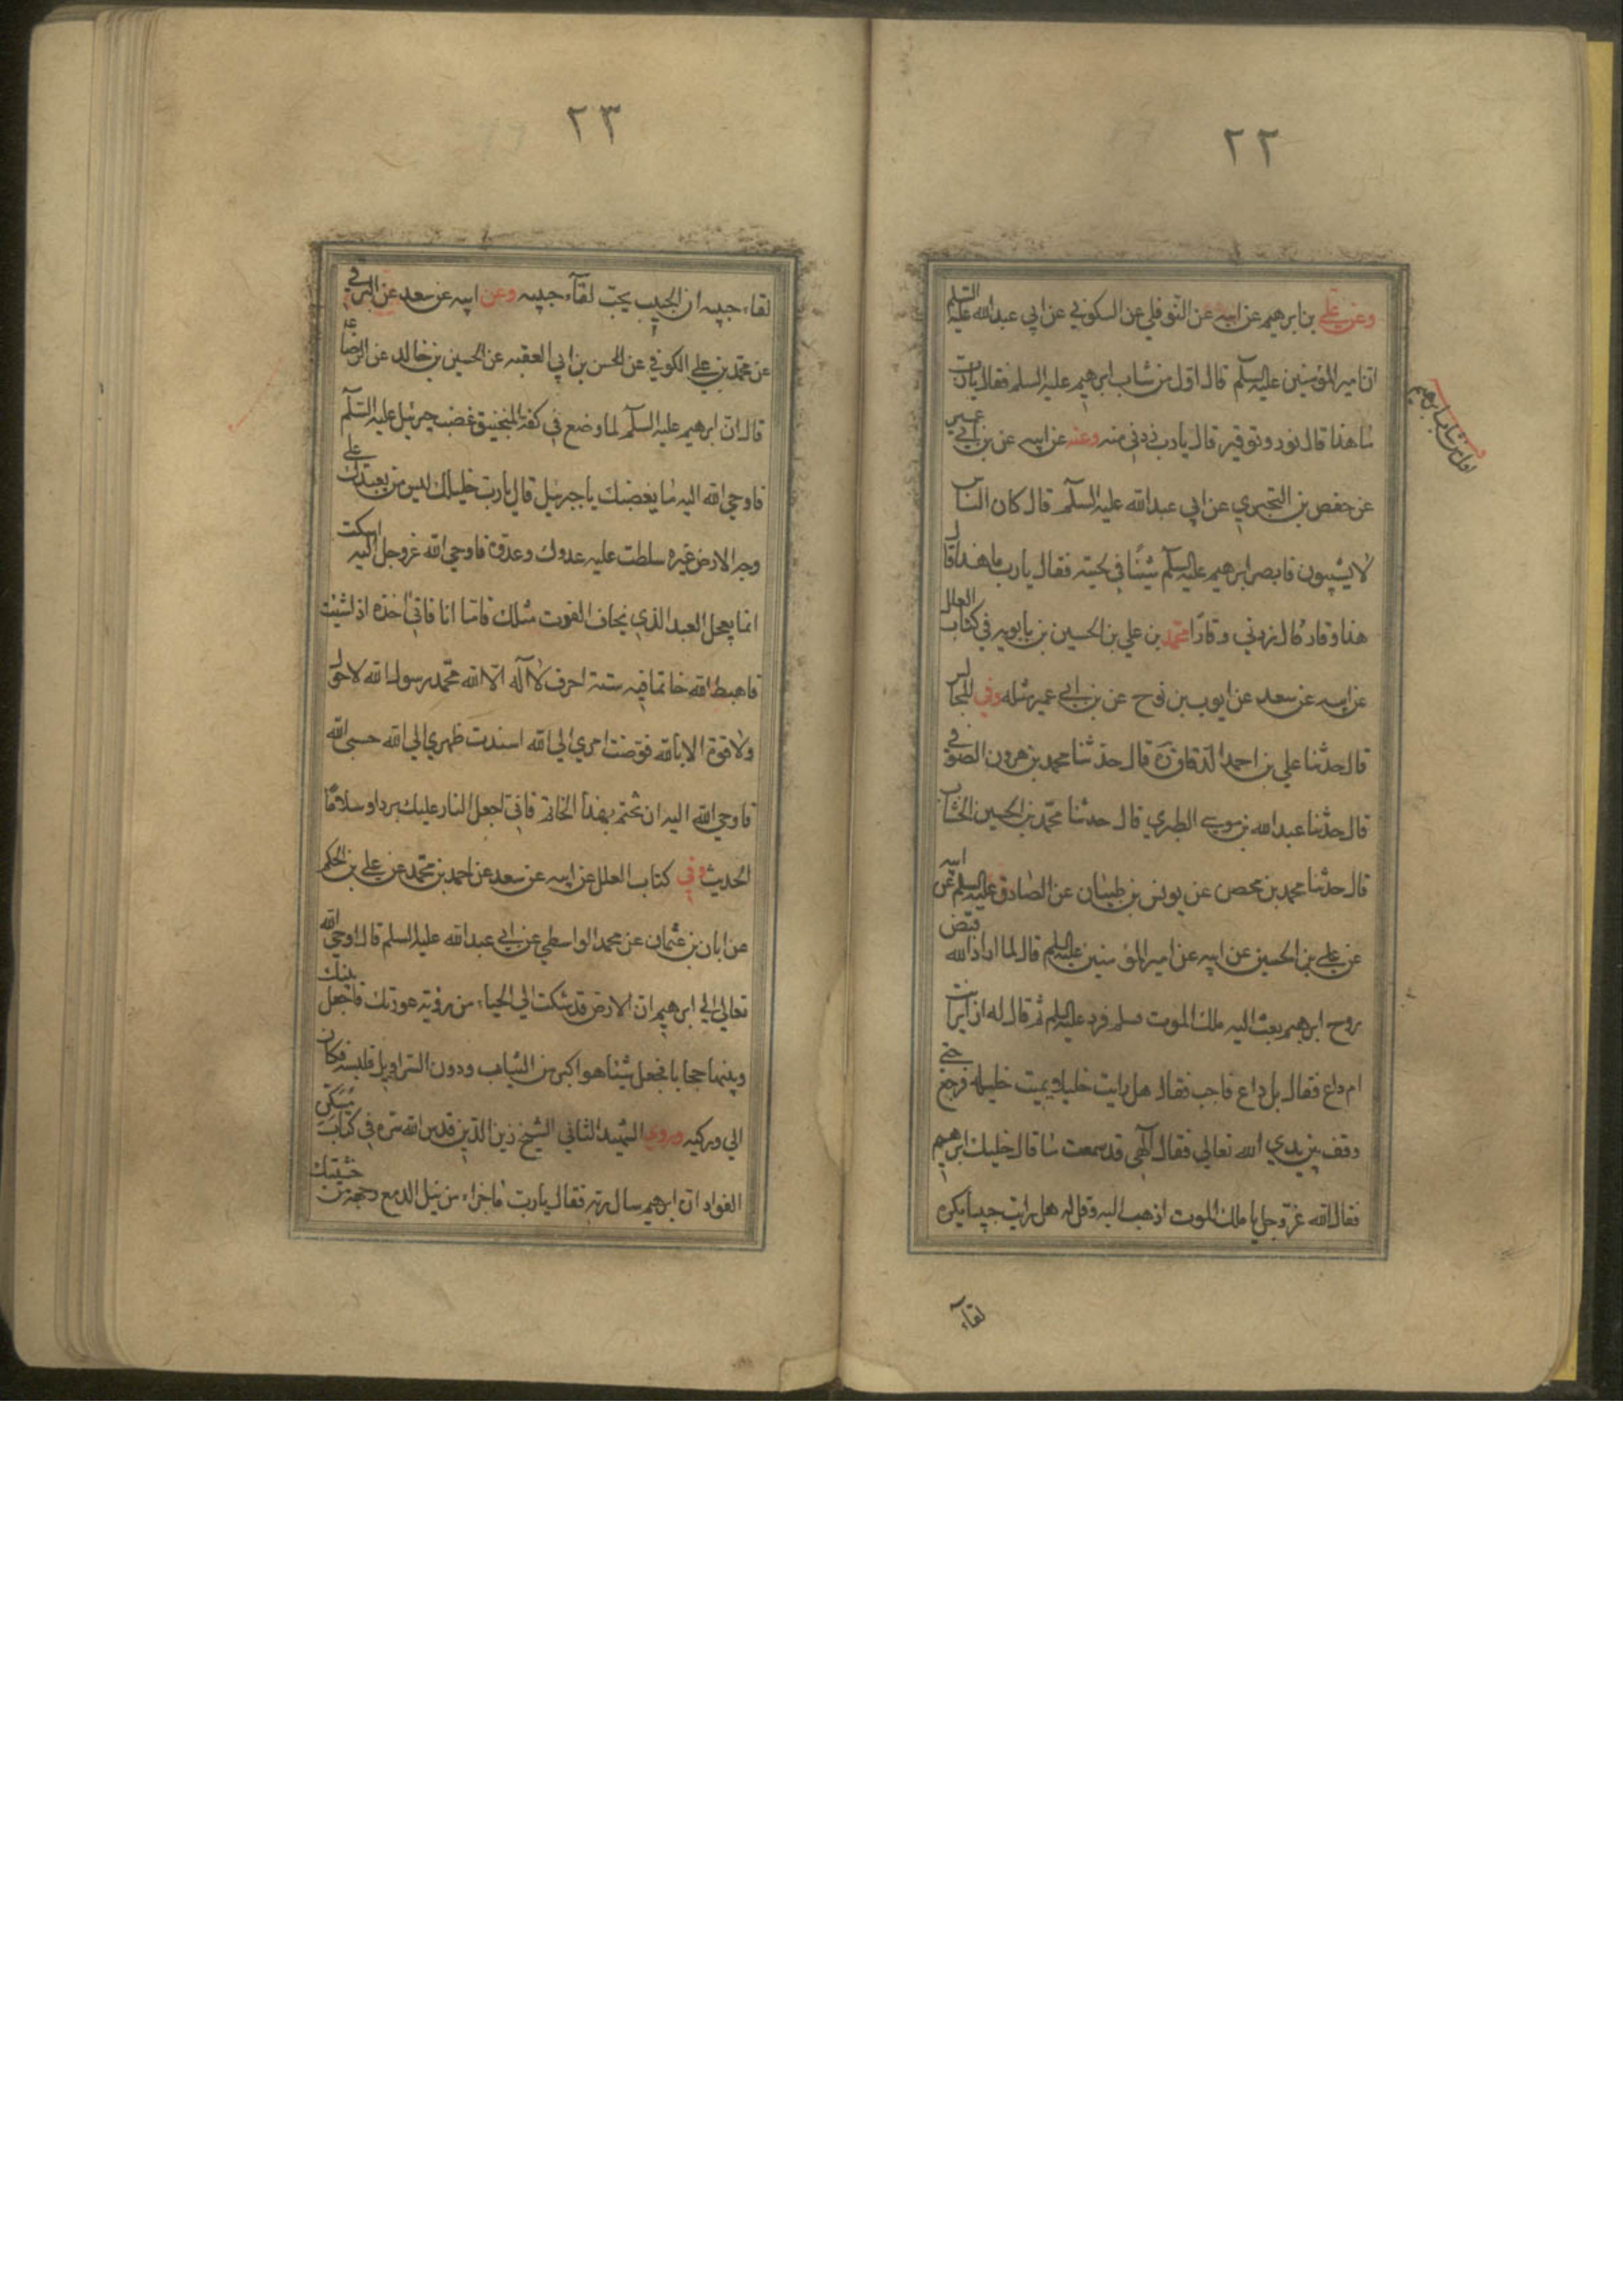 ٢٢
وعن علي بن ابرهيم عن ابيه عن النوفلي عن السكوني عن ابي عبد الله عليه السلم
ان امير المؤمنين عليه السلم قال اول من شاب ابرهيم عليه السلم فقال يا رب
ما هذا قال نور وتوقير قال يا رب زدني منه وعنه عن ابيه عن بن ابي عمير
عن حفص بن البختري عن ابي عبد الله عليه السلم قال كان الناس
لا يشيبون فابصر ابرهيم عليه السلم شيبا في لحيته فقال يا رب ما هذا قال
هذا وقار قال زدني وقارا محمد بن علي بن الحسين بن بابويه في كتاب العلل
عن ابيه عن سعد عن ايوب بن نوح عن بن ابي عمير مثله وفي المجالس
قال حدثنا علي بن احمد الدقاق ره قال حدثنا محمد بن هرون الصوفي
قال حدثنا عبد الله بن موسي الطبري قال حدثنا محمد بن الحسين الخشاب
قال حدثنا محمد بن محصن عن يونس بن ظبيان عن الصادق عليه السلم عن ابيه
عن علي بن الحسين عن ابيه عن امير المؤمنين عليه السلم قال لما اراد الله قبض
روح ابرهيم بعث اليه ملك الموت فسلم فرد عليه السلم ثم قال له ازايرا انت
ام داع فقال بل داع فاجب فقال هل رايت خليلا يميت خليله فرجع حتي
وقف بين يدي الله تعالي فقال الهي قد سمعت ما قال خليلك ابرهيم
فقال الله عز وجل يا ملك الموت اذهب اليه وقل له هل رايت حبيبا يكره
لقآء
اول من شاب ابرهيم
٢٣
لقاء حبيبه ان الحبيب يحب لقآء حبيبه وعن ابيه عن سعد عن البرقي
عن محمد بن علي الكوفي عن الحسن بن ابي العقبه عن الحسين بن خالد عن الرضا ع
قال ان ابرهيم عليه السلم لما وضع في كفة المنجنيق غضب جبرئيل عليه السلم
فاوحي الله اليه ما يغضبك يا جبرئيل قال يا رب خليلك ليس من يعبدك علي
وجه الارض غيره سلطت عليه عدوك وعدوه فاوحي الله عز وجل اليه اسكت
انما يعجل العبد الذي يخاف الفوت مثلك فاما انا فاني اخذه اذا شئت
فاهبط الله خاتما فيه ستة احرف لا اله الا الله محمد رسول الله لا حول
ولا قوة الا بالله فوضت امري الي الله اسندت ظهري الي الله حسبي الله
فاوحي الله اليه ان تختم بهذا الخاتم فاني اجعل النار عليك بردا وسلاما
الحديث وفي كتاب العلل عن ابيه عن سعد عن احمد بن محمد عن علي بن الحكم
عن ابان بن عثمان عن محمد الواسطي عن ابي عبد الله عليه السلم قال اوحي الله
تعالي الي ابرهيم ان الارض قد شكت الي الحياء من رؤية عورتك فاجعل بينك
وبينها حجابا فجعل شيئا هو اكبر من الثياب ودون السراويل فلبسه فكان
الي وركيه وروي الشهيد الثاني الشيخ زين الدين قدس الله سره في كتاب مسكن
الفواد ان ابرهيم سال ربه فقال يا رب ما جزاء من يبل الدمع وجهه من خشيتك